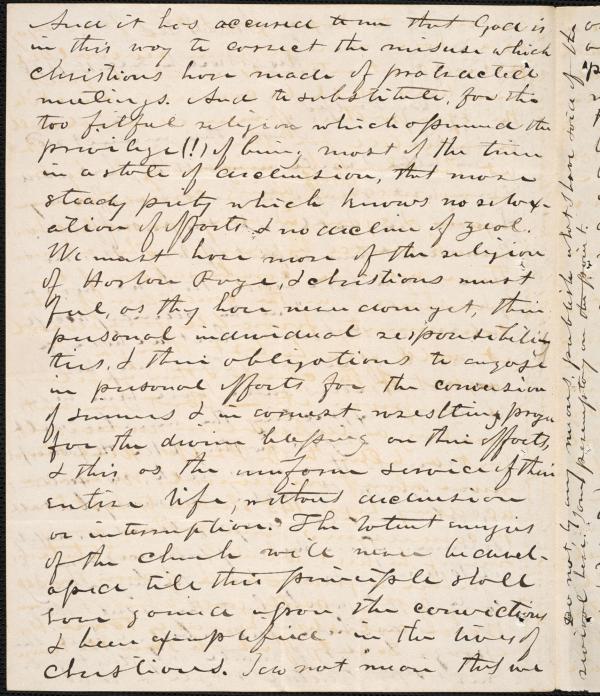 And it has occured to me that God is
in this way to correct the misuse which
christians have made of protracted
meetings. And to substitute, for the
too fitful religion which assumed the
privilege (!) of being most of the time
in a state of declension, that more
steady piety which knows no relax-
ation of efforts & no decline of zeal.
We must have more of the religion
of Harlan Page, & christians must
feel, as they have never done yet, their
personal individual responsibili-
ties, & their obligations to engage
in personal efforts for the conversion
of sinners & in earnest wrestling prayer
for the divine blessing on their efforts,
& this as the uniform service of their
entire life, without declension
or interruption. The latent energies
of the church will never be devel-
oped till this principle shall
have gained upon the convictions
& been exemplified in the lives of
christians. I do not mean that we
Do not, by any means, publish what I have said of the
revival here. I am peremptory on this point.